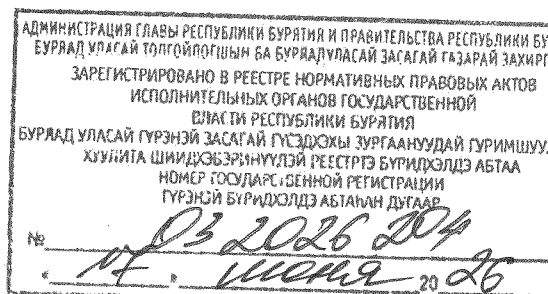 АДМИНИСТРАЦИЯ ГЛАВЫ РЕСПУБЛИКИ БУРЯТИЯ И ПРАВИТЕЛЬСТВА РЕСПУБЛИКИ БУ
БУРЯАД УЛАСАЙ ТОЛГОЙЛОГШЫН БА БУРЯАД УЛАСАЙ ЗАСАГАЙ ГАЗАРАЙ ЗАХИРГ
ЗАРЕГИСТРИРОВАНО В РЕЕСТРЕ НОРМАТИВНЫХ ПРАВОВЫХ АКТОВ
ИСПОЛНИТЕЛЬНЫХ ОРГАНОВ ГОСУДАРСТВЕННОЙ
ВЛАСТИ РЕСПУБЛИКИ БУРЯТИЯ
БУРЯАД УЛАСАЙ ГҮРЭНЭЙ ЗАСАГАЙ ГҮЙСЭДХЭХЫ ЗУРГААНУУДАЙ ГУРИМШУУЛ
ХУУЛИТА ШИИДХЭБЭРИНҮҮДЭЙ РЕЕСТРТЭ БҮРИДХЭЛДЭ АБТАА
НОМЕР ГОСУДАРСТВЕННОЙ РЕГИСТРАЦИИ
ГҮРЭНЭЙ БҮРИДХЭЛДЭ АБТАҺАН ДУГААР
№ 03 2026 204
« 17 » июня 20 26